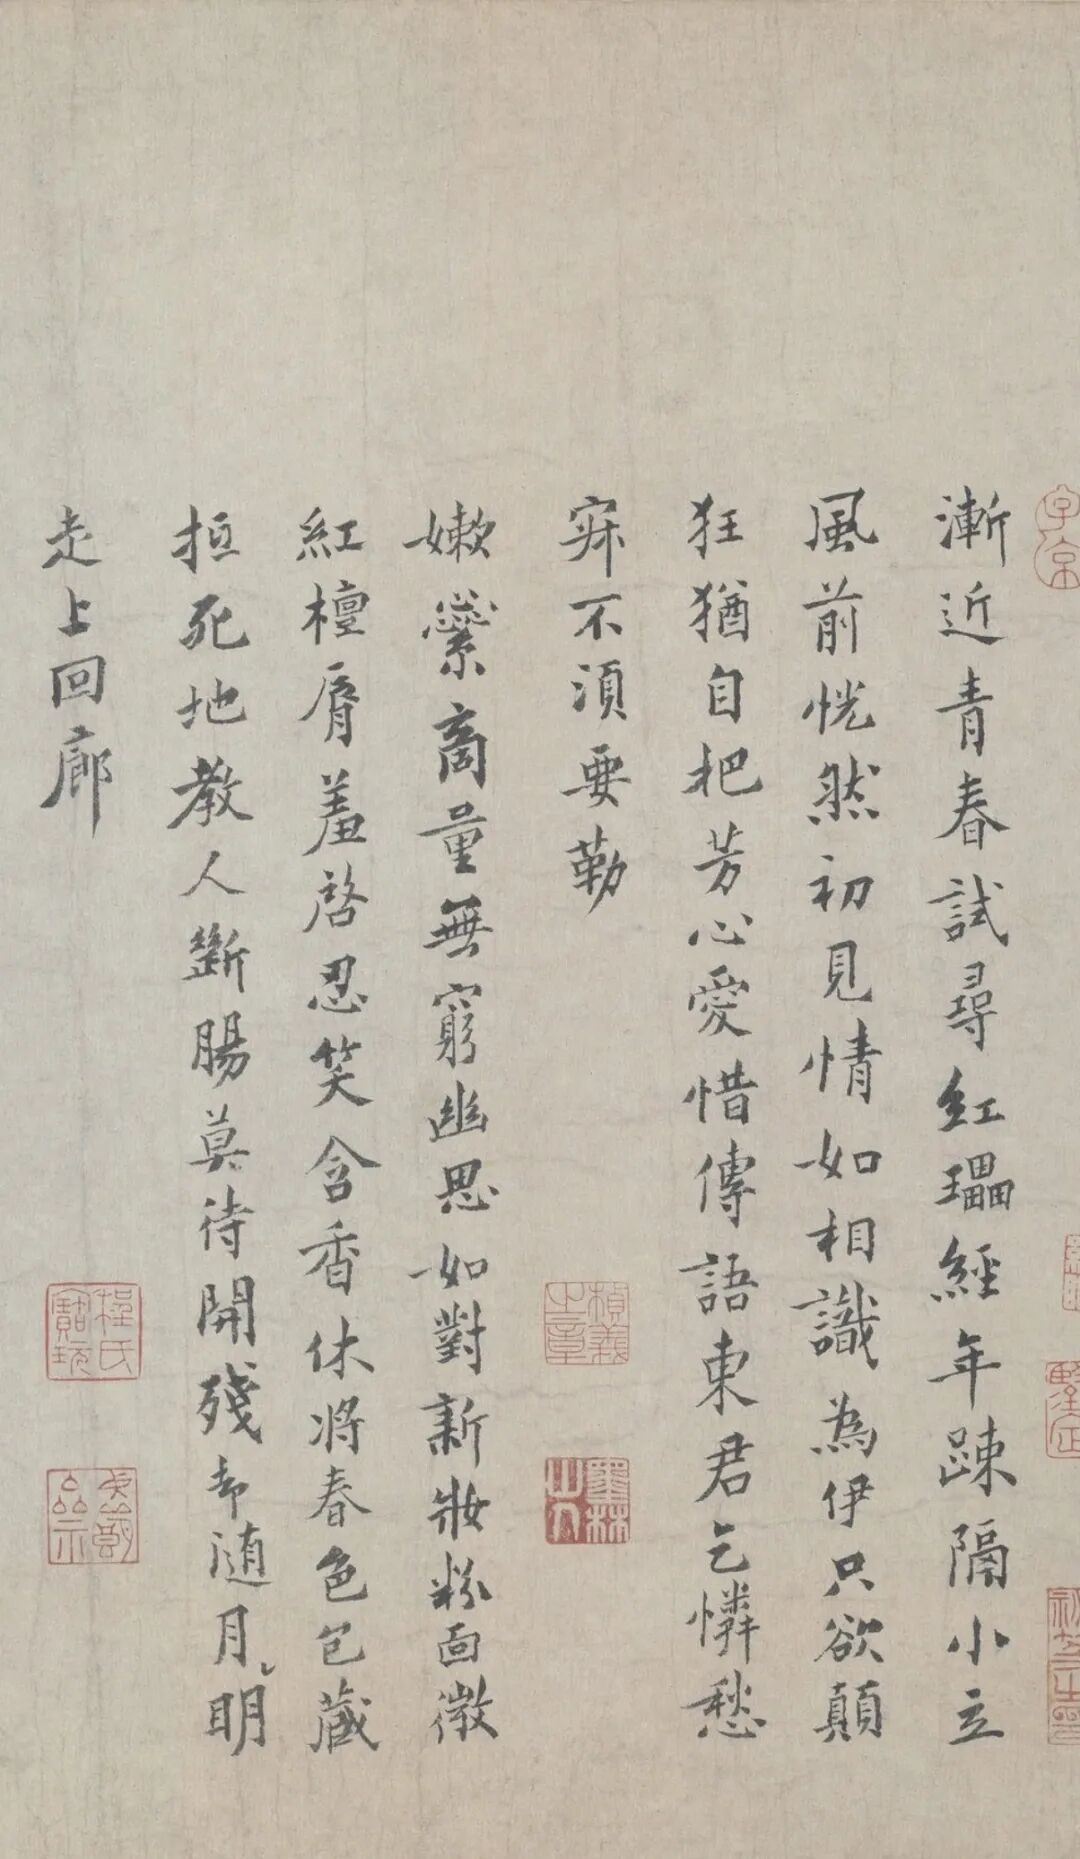 漸近青春試尋紅瓃經年疎隔小立
風前恍然初見情如相識為伊只欲顛
狂猶自把芳心愛惜傳語東君乞憐愁
寂不須要勒
嫩蘂商量無窮幽思如對新妝粉面微
紅檀脣羞啓忍笑含香休將春色包藏
抵死地教人斷腸莫待開殘却随月明
走上回廊
子京
墨林山人
程氏寶玩